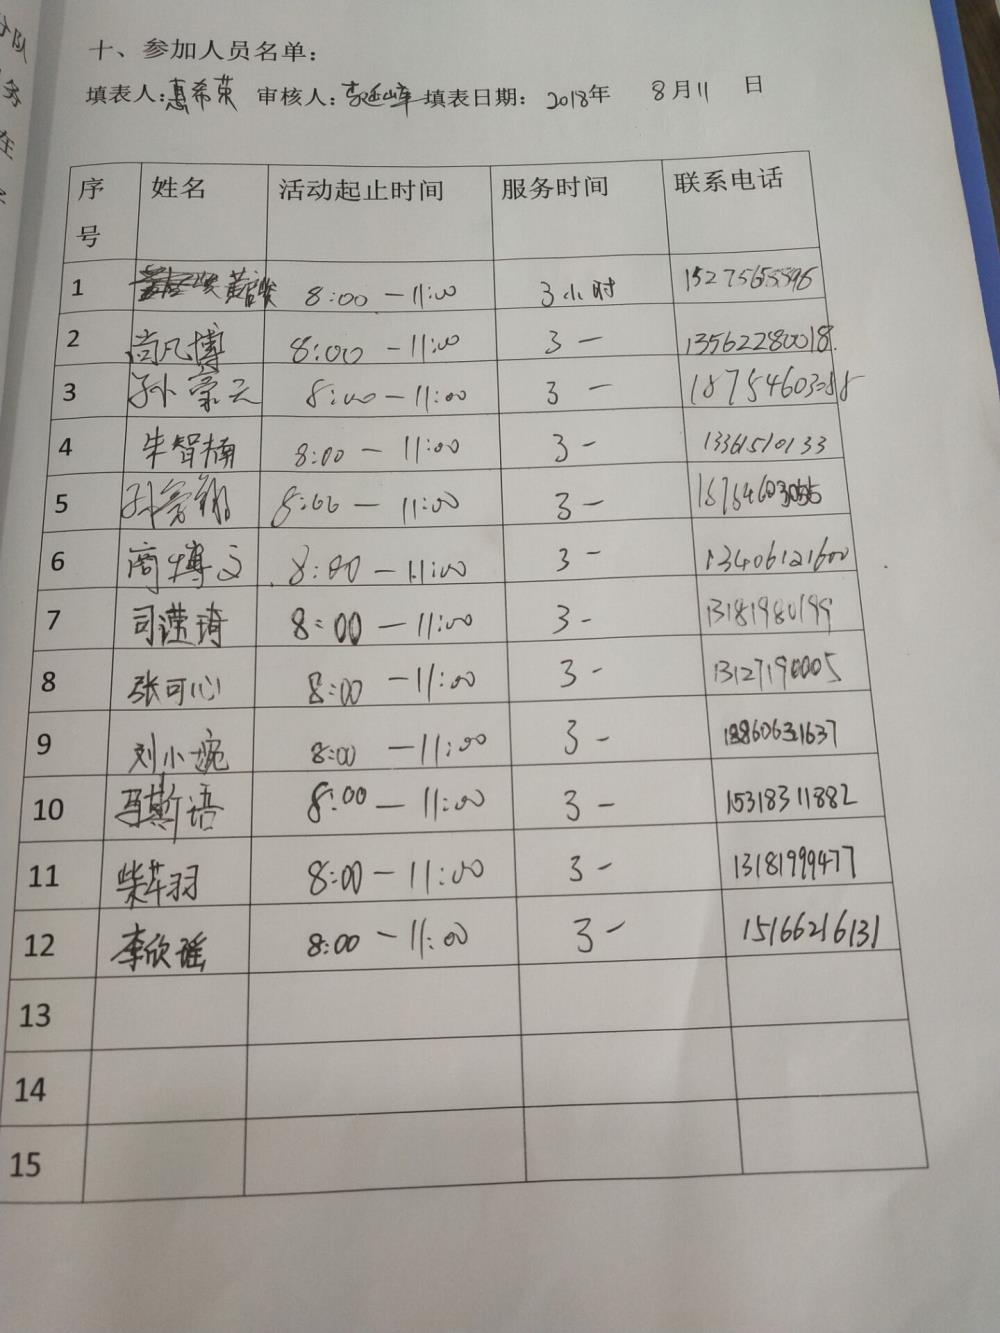 分队
务
在
十、参加人员名单：
填表人：惠希荣 审核人： 填表日期： 2018年 8月11 日
序号 姓名 活动起止时间 服务时间 联系电话
1 8:00 — 11:00 3小时
2 尚凡博 8:00 — 11:00 3 — 13562280018
3 孙豪云 8:00 — 11:00 3 — 18754603088
4 牛智楠 8:00 — 11:00 3 — 13361510133
5 8:00 — 11:00 3 —
6 商博文 8:00 — 11:00 3 — 13406121600
7 司谨琦 8:00 — 11:00 3 — 13181980199
8 张可心 8:00 — 11:00 3 — 13127190005
9 刘小婉 8:00 — 11:00 3 — 18860631637
10 冯斯语 8:00 — 11:00 3 — 15318311882
11 柴芊羽 8:00 — 11:00 3 — 13181999477
12 李欣瑶 8:00 — 11:00 3 — 15166216131
13
14
15